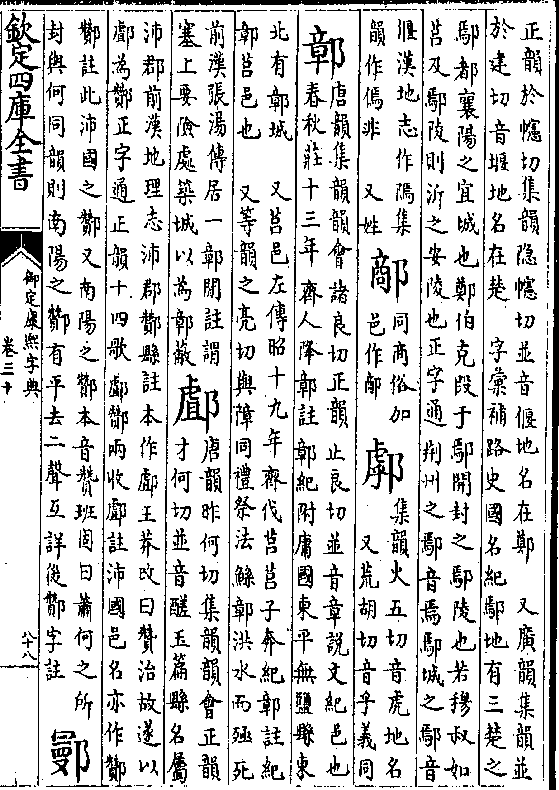 正韻於幰切集韻隱幰切並音偃地名在鄭 又廣韻集韻並
於建切音堰地名在楚 字彙補路史國名紀鄢地有三楚之
鄢都襄陽之宜城也鄭伯克段于鄢開封之鄢陵也若穆叔如
莒及鄢陵則沂之安陵也正字通荆州之鄢音焉鄢城之鄢音
偃漢地志作隝集
韻作傿非 又姓 鄗 同商俗加
邑作鄗 䣝 集韻火五切音虎地名
又荒胡切音乎義同
鄣 唐韻集韻韻會諸良切正韻止良切並音章說文紀邑也
春秋莊十三年齊人降鄣註鄣紀附庸國東平無鹽縣東
北有鄣城 又莒邑左傳昭十九年齊伐莒莒子奔紀鄣註紀
鄣莒邑也 又等韻之亮切與障同禮祭法鯀鄣洪水而殛死
前漢張湯傳居一鄣閒註謂
塞上要險處築城以為鄣蔽 䣜 唐韻昨何切集韻韻會正韻
才何切並音醝玉篇縣名屬
沛郡前漢地理志沛郡酇縣註本作䣜王莽改曰贊治故遂以
䣜為酇正字通正韻十四歌䣜酇兩收䣜註沛國邑名亦作酇
酇註此沛國之酇又南陽之酇本音贊班固曰蕭何之所
封與何同韻則南陽之酇有平去二聲互詳後酇字註 鄤
欽定四庫全書
御定康熙字典
卷三十